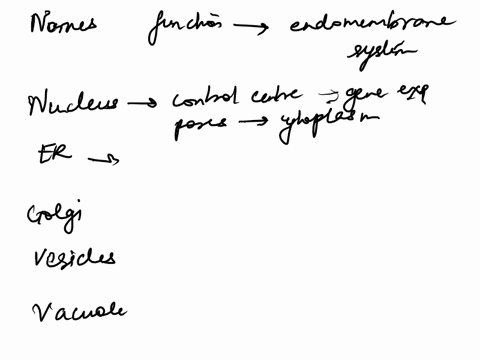 Names function → endomembrane
system
Nucleus → control centre → gene exp
pores → cytoplasm
ER →
Golgi
Vesicles
Vacuole